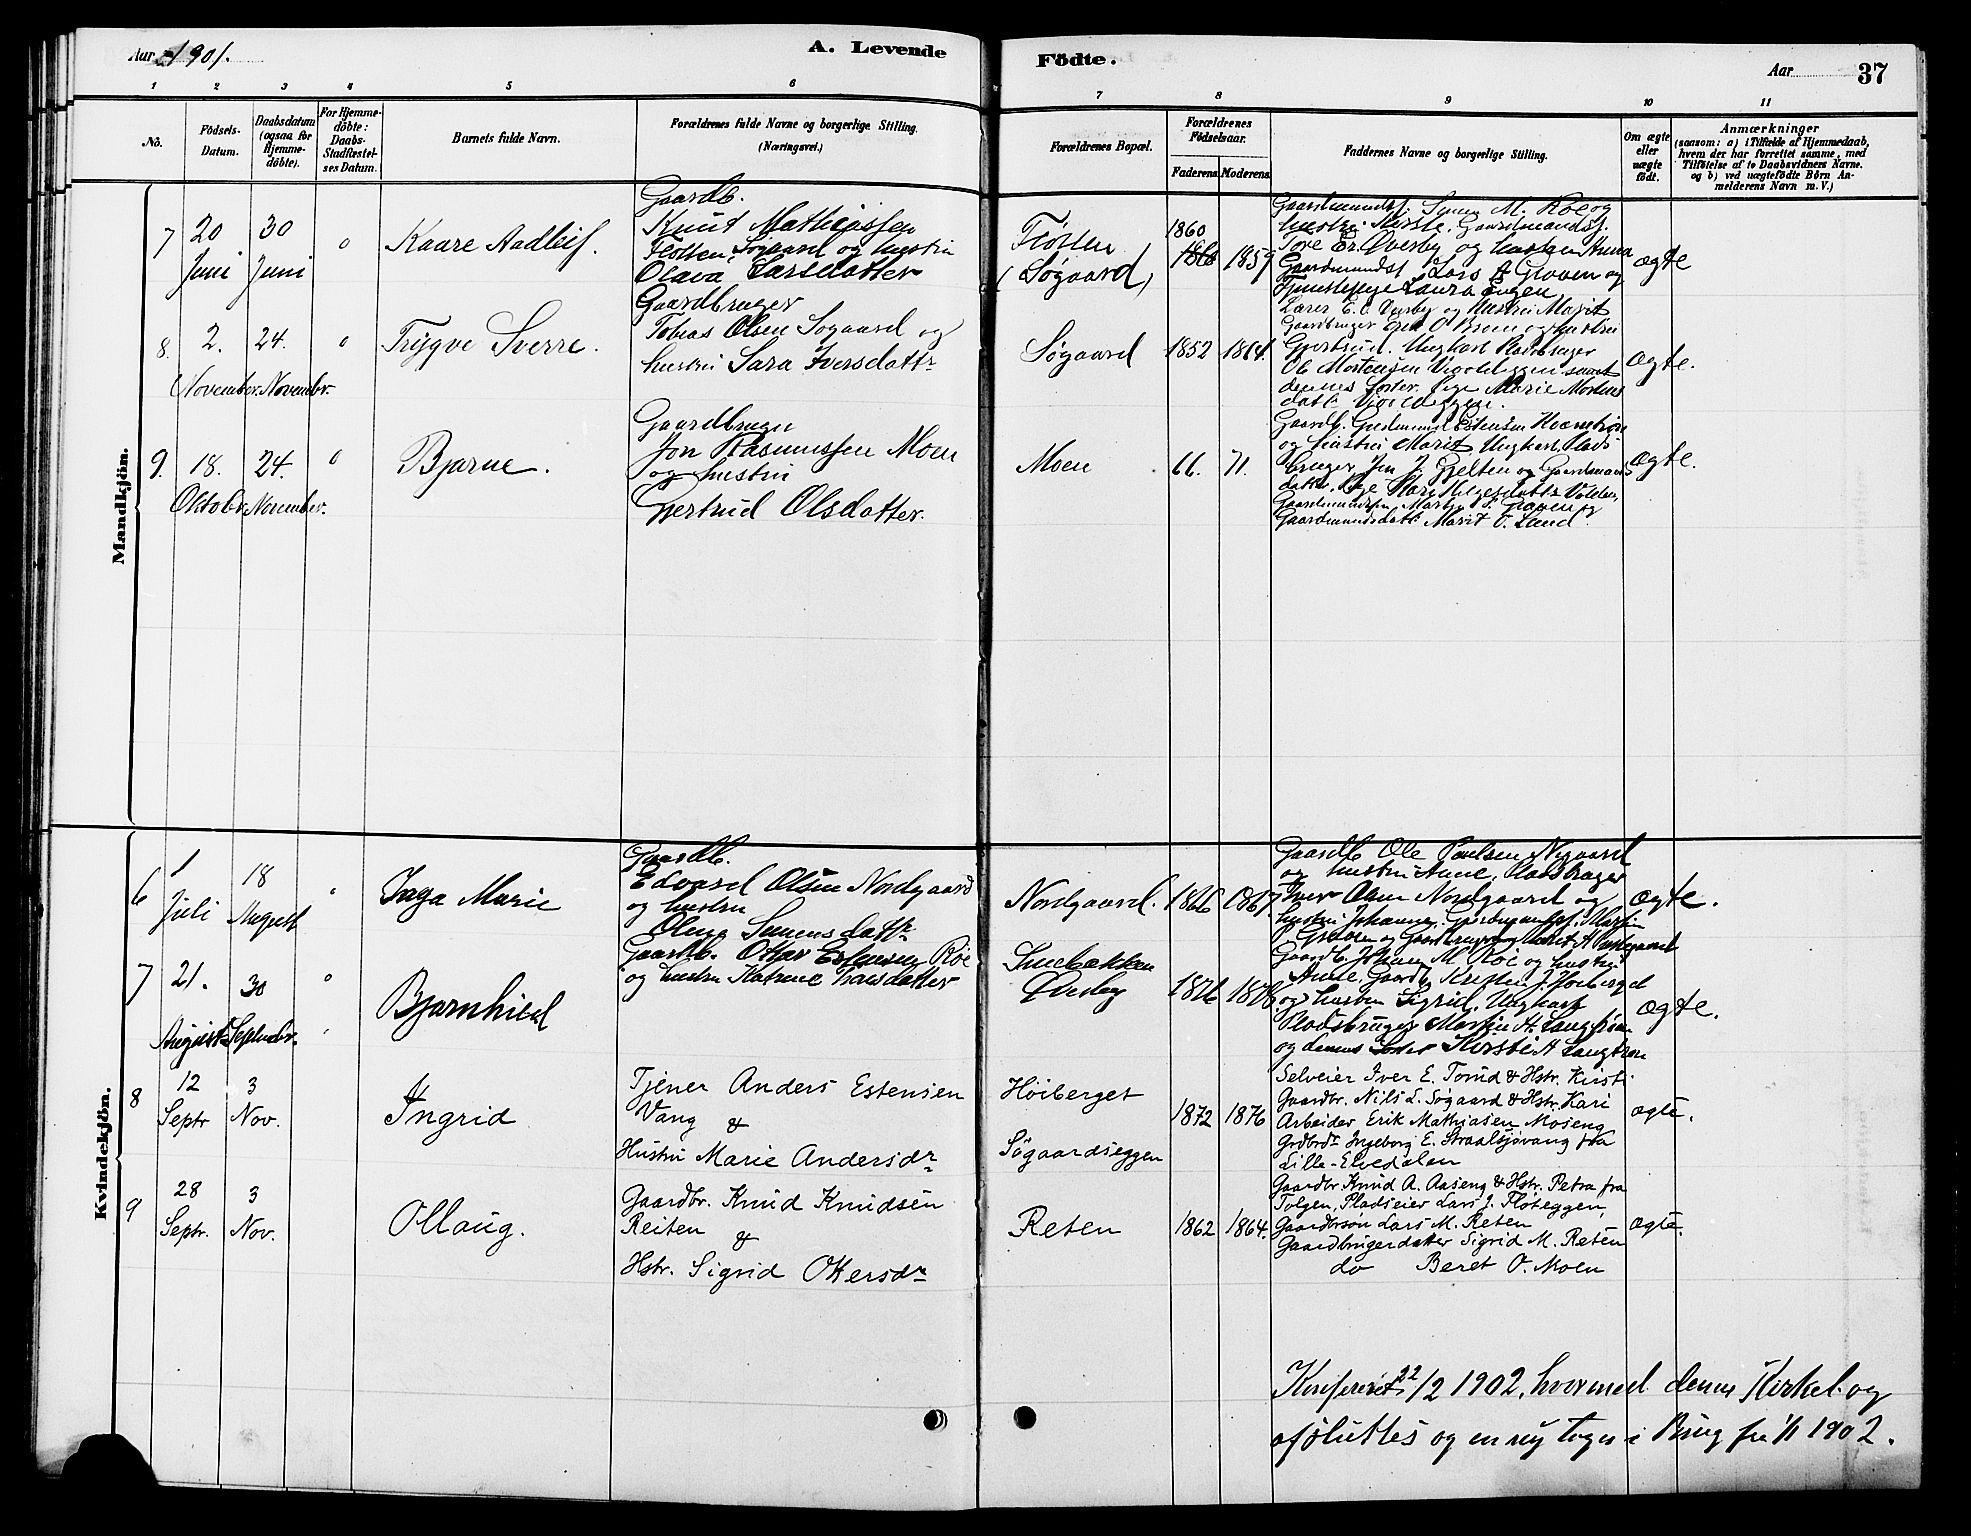 Aar 1901.
A. Levende
Födte.
Aar
37
1 2 3 4 5 6 7 8 9 10 11
No.
Födsels-
Datum.
Daabsdatum
(ogsaa for
Hjemme-
döbte).
For Hjemme-
döbte:
Daabs-
Stadfæstel-
ses Datum.
Barnets fulde Navn.
Forældrenes fulde Navne og borgerlige Stilling.
(Næringsvei.)
Forældrenes Bopæl.
Forældrenes
Födselsaar.
Faderens Moderens
Faddernes Navne og borgerlige Stilling.
Om ægte
eller
uægte
født.
Anmærkninger
(saasom: a) i Tilfælde af Hjemmedaab,
hvem der har forrettet samme, med
Tilföielse af to Daabsvidners Navne.
og b) ved uægtefödte Börn An-
melderens Navn m. V.)
Mandkjön.
7
20
Juni
30
Juni
Kaare Aadleif.
Gaardb.
Knut Mathiassen
Flotten, Søgaard og hustru
Olava Larsdatter
Flotten
(Søgaard)
1860
1859
Gaardmandsf. M. Roe og
hustru Kirste, Gaardmandsf.
Tore Er. Øversby og hustru Anna
Gaardmandsf Lars A Graven og
Tjenestepige Laura Engen
ægte
8.
2.
November.
24.
Novembr.
Trygve Sverre.
Gaardbruger
Tobias Olsen Søgaard og
hustru Sara Iversdattr
Søgaard
1852
1864.
Lærer E. O. Øversby og Hustru Marit
Gaardbruger O Broen og hustru
Gjertrud. Ungkarl Pladsbruger
Ole Mortensen samt
dennes Søster, Pige Marie Mortens
datt.
ægte.
9.
18.
Oktobr.
24.
November.
Bjarne.
Gaardbruger
Jon Rasmussen Moen
og hustru
Gjertrud Olsdatter.
Moen
66.
71.
Gaardb. Estensen
og hustru Marit Ungkarl Plads
bruger Jon J. Gjelten og Gaardmands
datter, Pige
Gaardmandssøn Martin Graven og
Gaardmandsdatt. Marit O. Lund.
ægte.
Kvindekjön.
6
1
Juli
18
August
Inga Marie
Gaardb.
Edvard Olsen Nordgaard
og hustru
Olina Simensdattr
Nordgaard.
1866
1867
Gaardb Ole Paulsen Nygaard
og hustru Anne, Pladsbruger
Iver Olsen Nordgaard og
hustru Johanne, Martin
Graven og
ægte.
7
21.
August
30
September
Bjarnhild
Gaardb. Ottar Estensen Roe
og hustru Katrine
Øversby
1876
1876
Gaardb Johan M Roe og hustru
Anne. Gaardb. Kristen J. Høiberget
og hustru Sigrid. Ungkarl
Pladsbruger Martin H. Langtrøen
og dennes Søster Kirsti H Langtrøen
ægte.
8
12
Septr
3
Nov.
Ingrid
Tjener Anders Estensen
Vang &
Hustru Marie Andersdr.
Høiberget
Søgaardseggen
1872
1876
Selveier Iver E. Tonid & Hstr. Kirsti.
Gaardbr. Nils L. Søgaard & Hstr. Kari
Arbeider Erik Mathiasen Moseng
Grdbrdr. Ingeborg E. Straalsjøvang fra
Lille-Elvedalen
ægte.
9
28
Septr.
3
Nov.
Ollaug.
Gaardbr. Knud Knudsen
Reiten &
Hstr. Sigrid Ottersdr.
Reten
1862
1864.
Gaardbr. Knud A. Aaseng & Hstr. Petra fra
Tolgen, Pladseier Lars J. Fløteggen,
Gaardbrsøn Lars M. Reten
Gaardbrugerdatter Sigrid M. Reten
do Beret O. Moen
ægte.
Konfereret 22/2 1902, hvormed denne Kirkeb. og
afsluttes og en ny tages i Brug fra 1/1 1902.